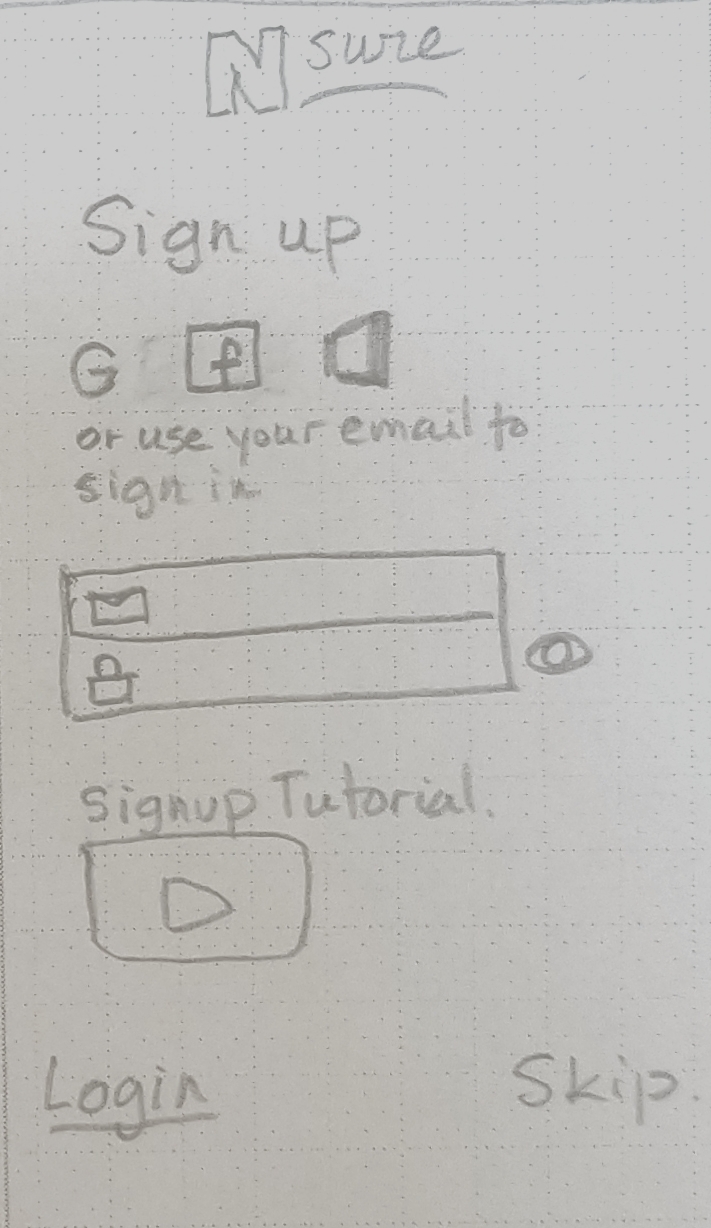 N sure
Sign up
G f
or use your email to
sign in
Signup Tutorial.
Login Skip.